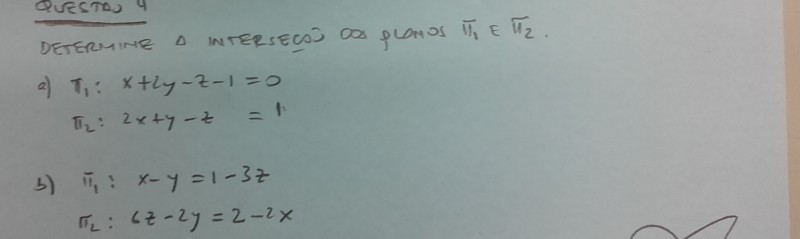 QUESTÃO 4
DETERMINE A INTERSEÇÃO DOS PLANOS π₁ E π₂.
a) π₁: x+2y-z-1=0
π₂: 2x+y-z = 1
b) π₁: x-y=1-3z
π₂: 6z-2y=2-2x